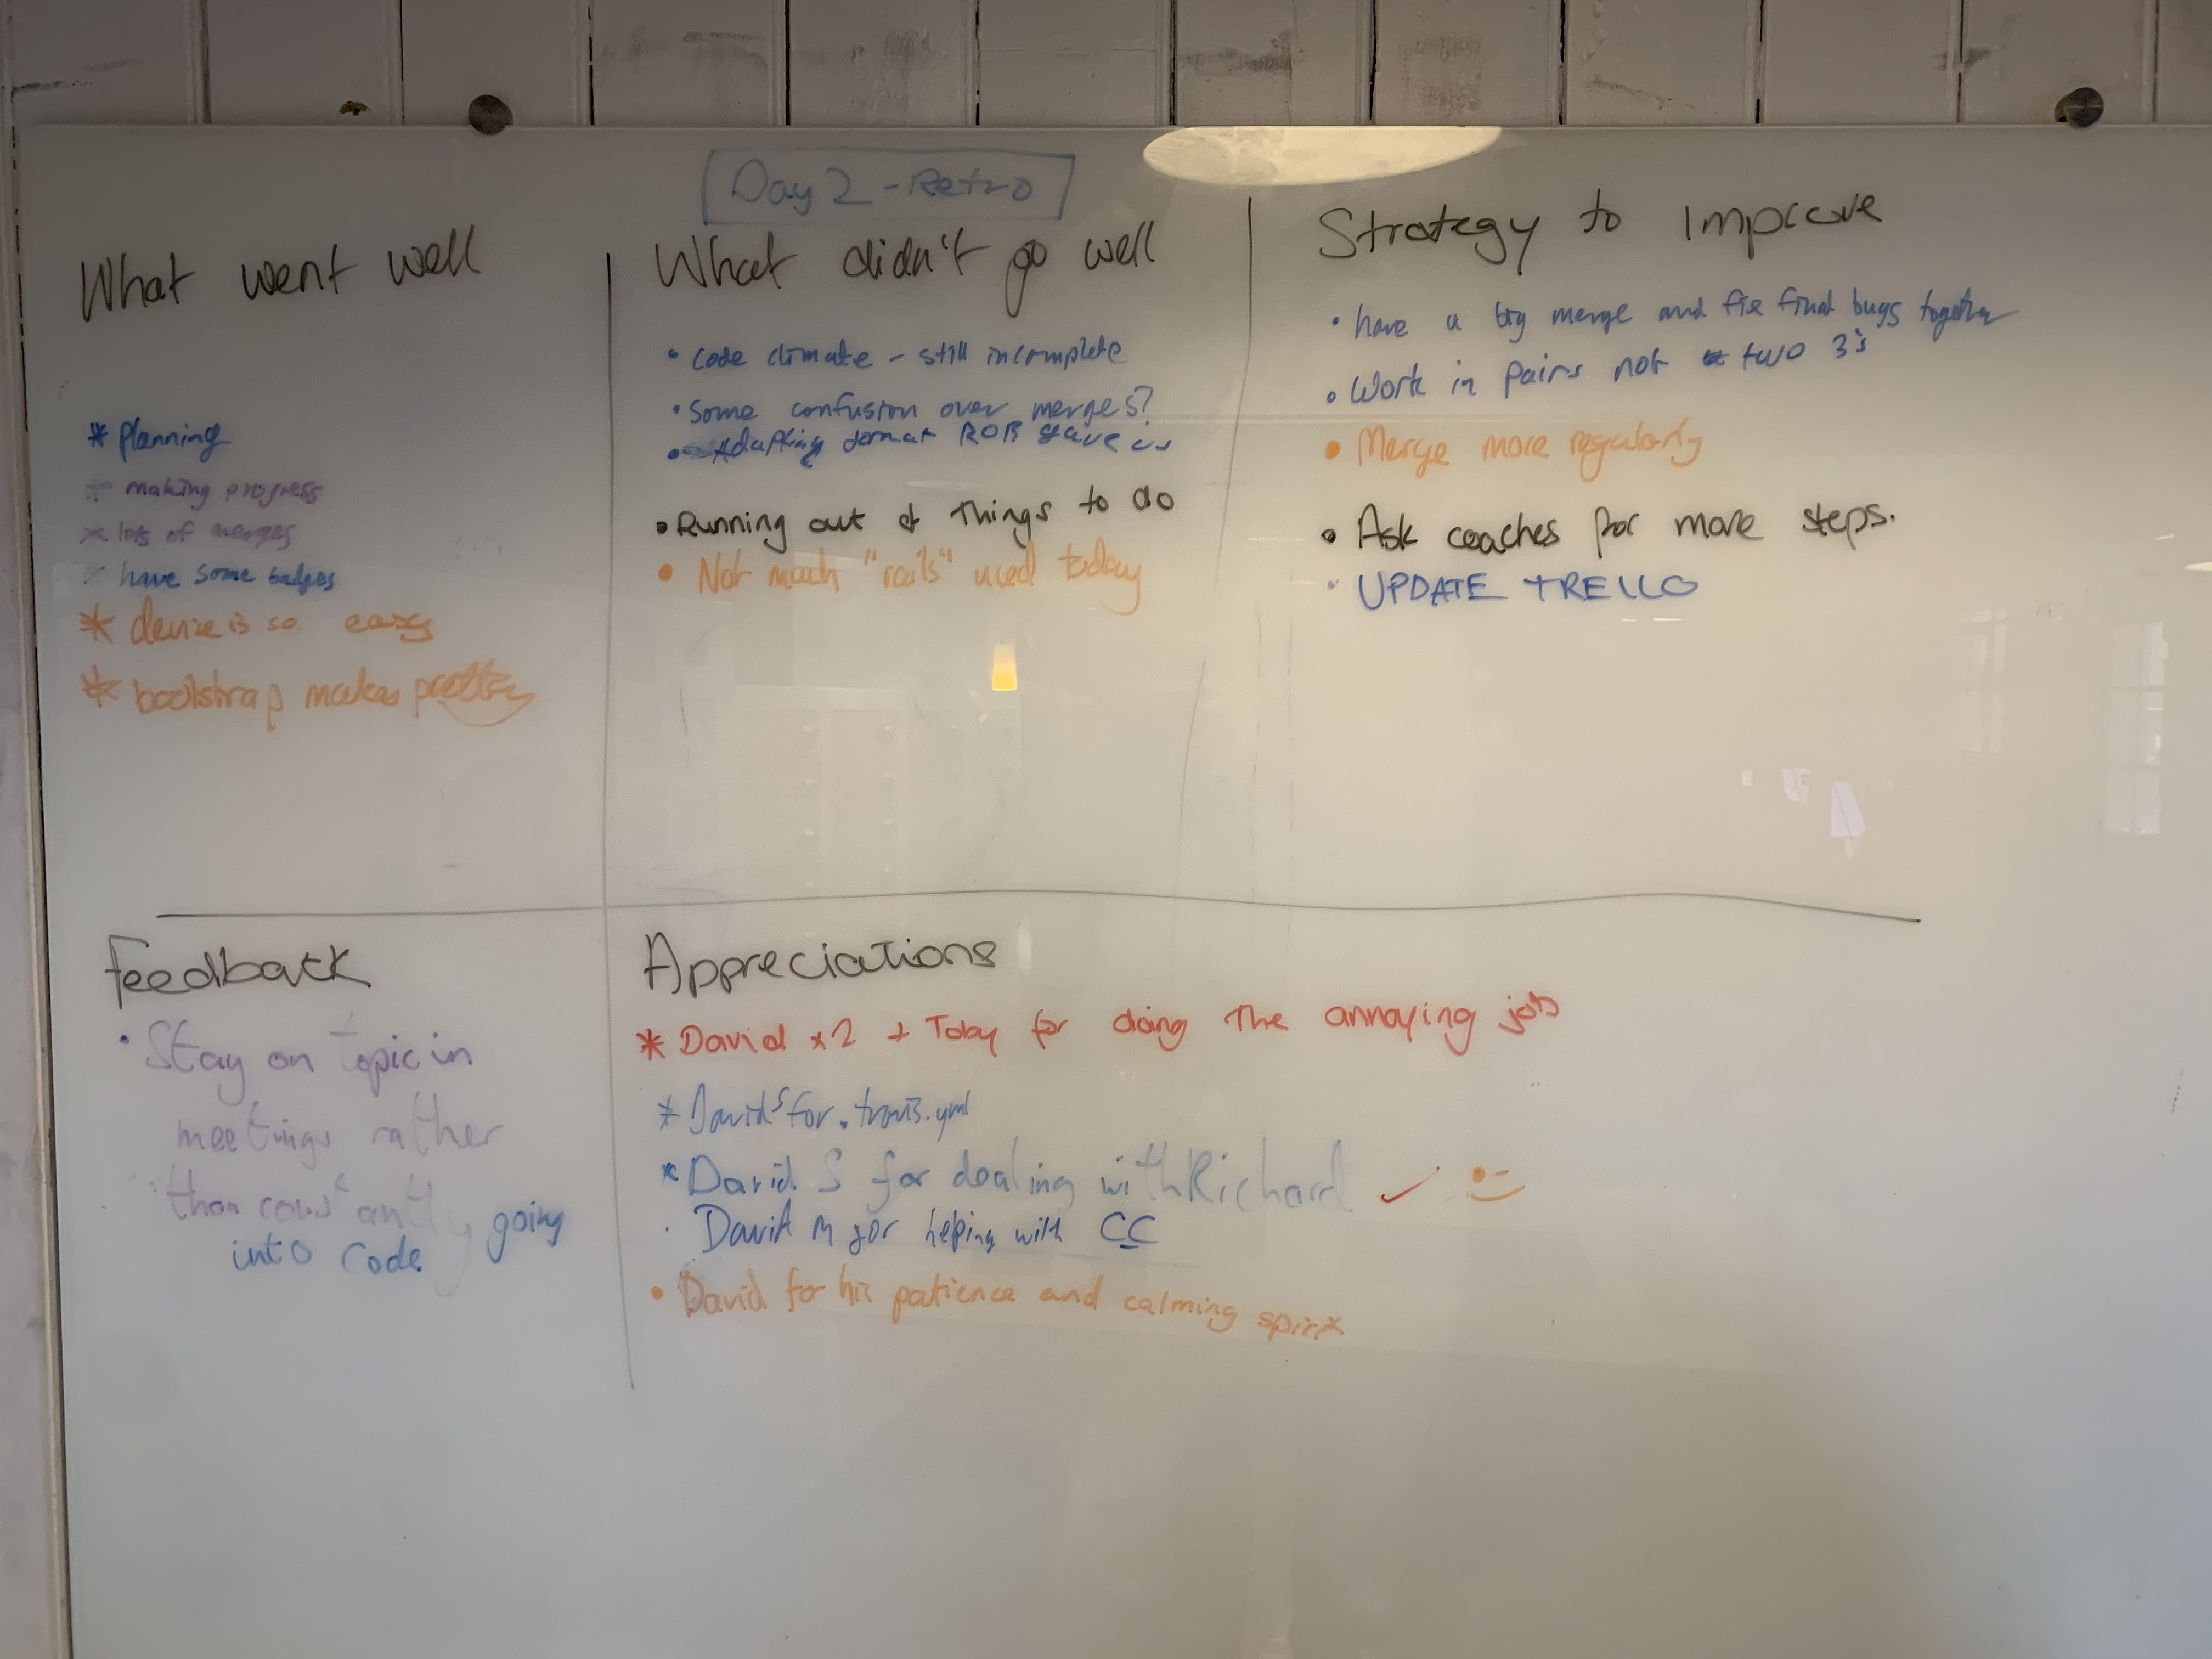 Day 2 - Retro
What went well
* planning
* making progress
* lots of merges
* have some badges
* devise is so easy
* bootstrap makes pretty
What didn't go well
• code climate - still incomplete
• Some confusion over merges?
• Adapting format ROB gave us
• Running out of things to do
• Not much "rails" used today
Strategy to improve
• have a big merge and fix final bugs together
• Work in pairs not two 3's
• Merge more regularly
• Ask coaches for more steps.
• UPDATE TRELLO
Feedback
• Stay on topic in
meetings rather
than constantly going
into code
Appreciations
* David x2 + Toby for doing the annoying job
* David S for .travis.yml
* David S for dealing with Richard ✓
• David M for heping with CC
• David for his patience and calming spirit